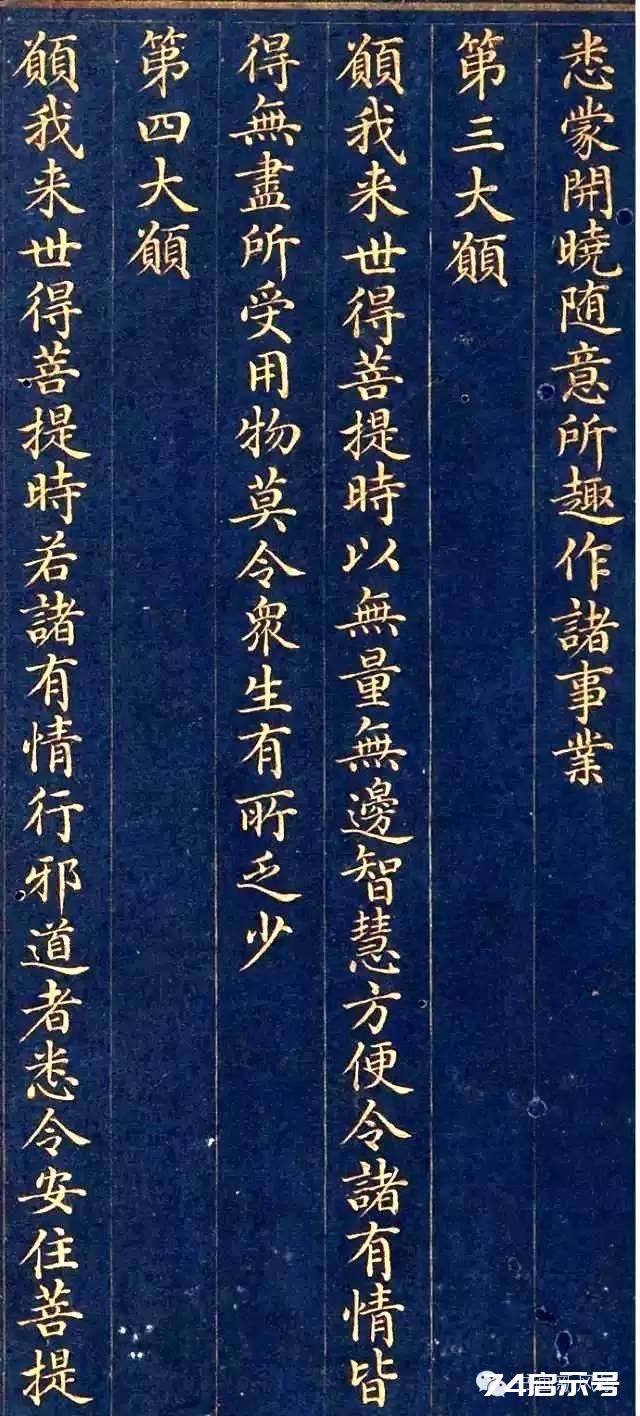 悉蒙開曉随意所趣作諸事業
第三大願
願我来世得菩提時以無量無邊智慧方便令諸有情皆
得無盡所受用物莫令衆生有所乏少
第四大願
願我来世得菩提時若諸有情行邪道者悉令安住菩提
74启示号